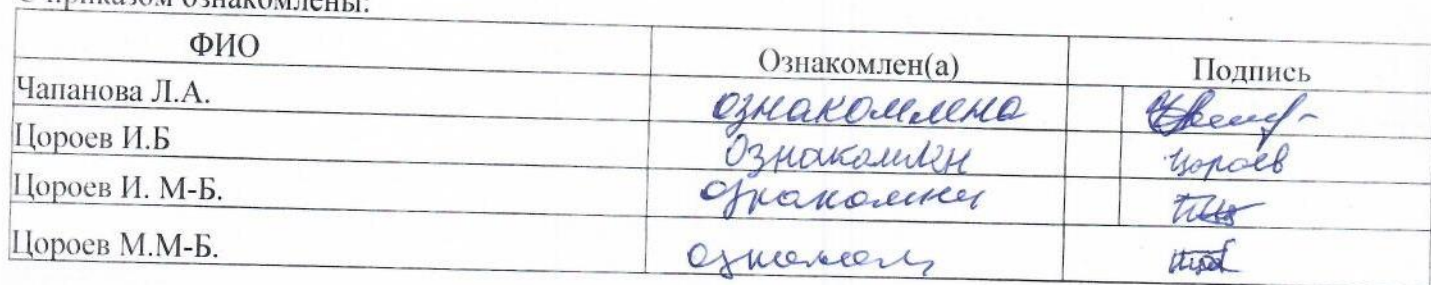 С приказом ознакомлены:
ФИО Ознакомлен(а) Подпись
Чапанова Л.А. ознакомлена
Цороев И.Б Ознакомлен цороев
Цороев И. М-Б. ознакомлен
Цороев М.М-Б.